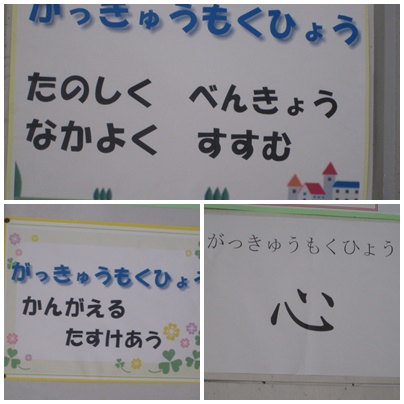 がっきゅうもくひょう
たのしく べんきょう
なかよく すすむ
がっきゅうもくひょう
かんがえる
たすけあう
がっきゅうもくひょう
心